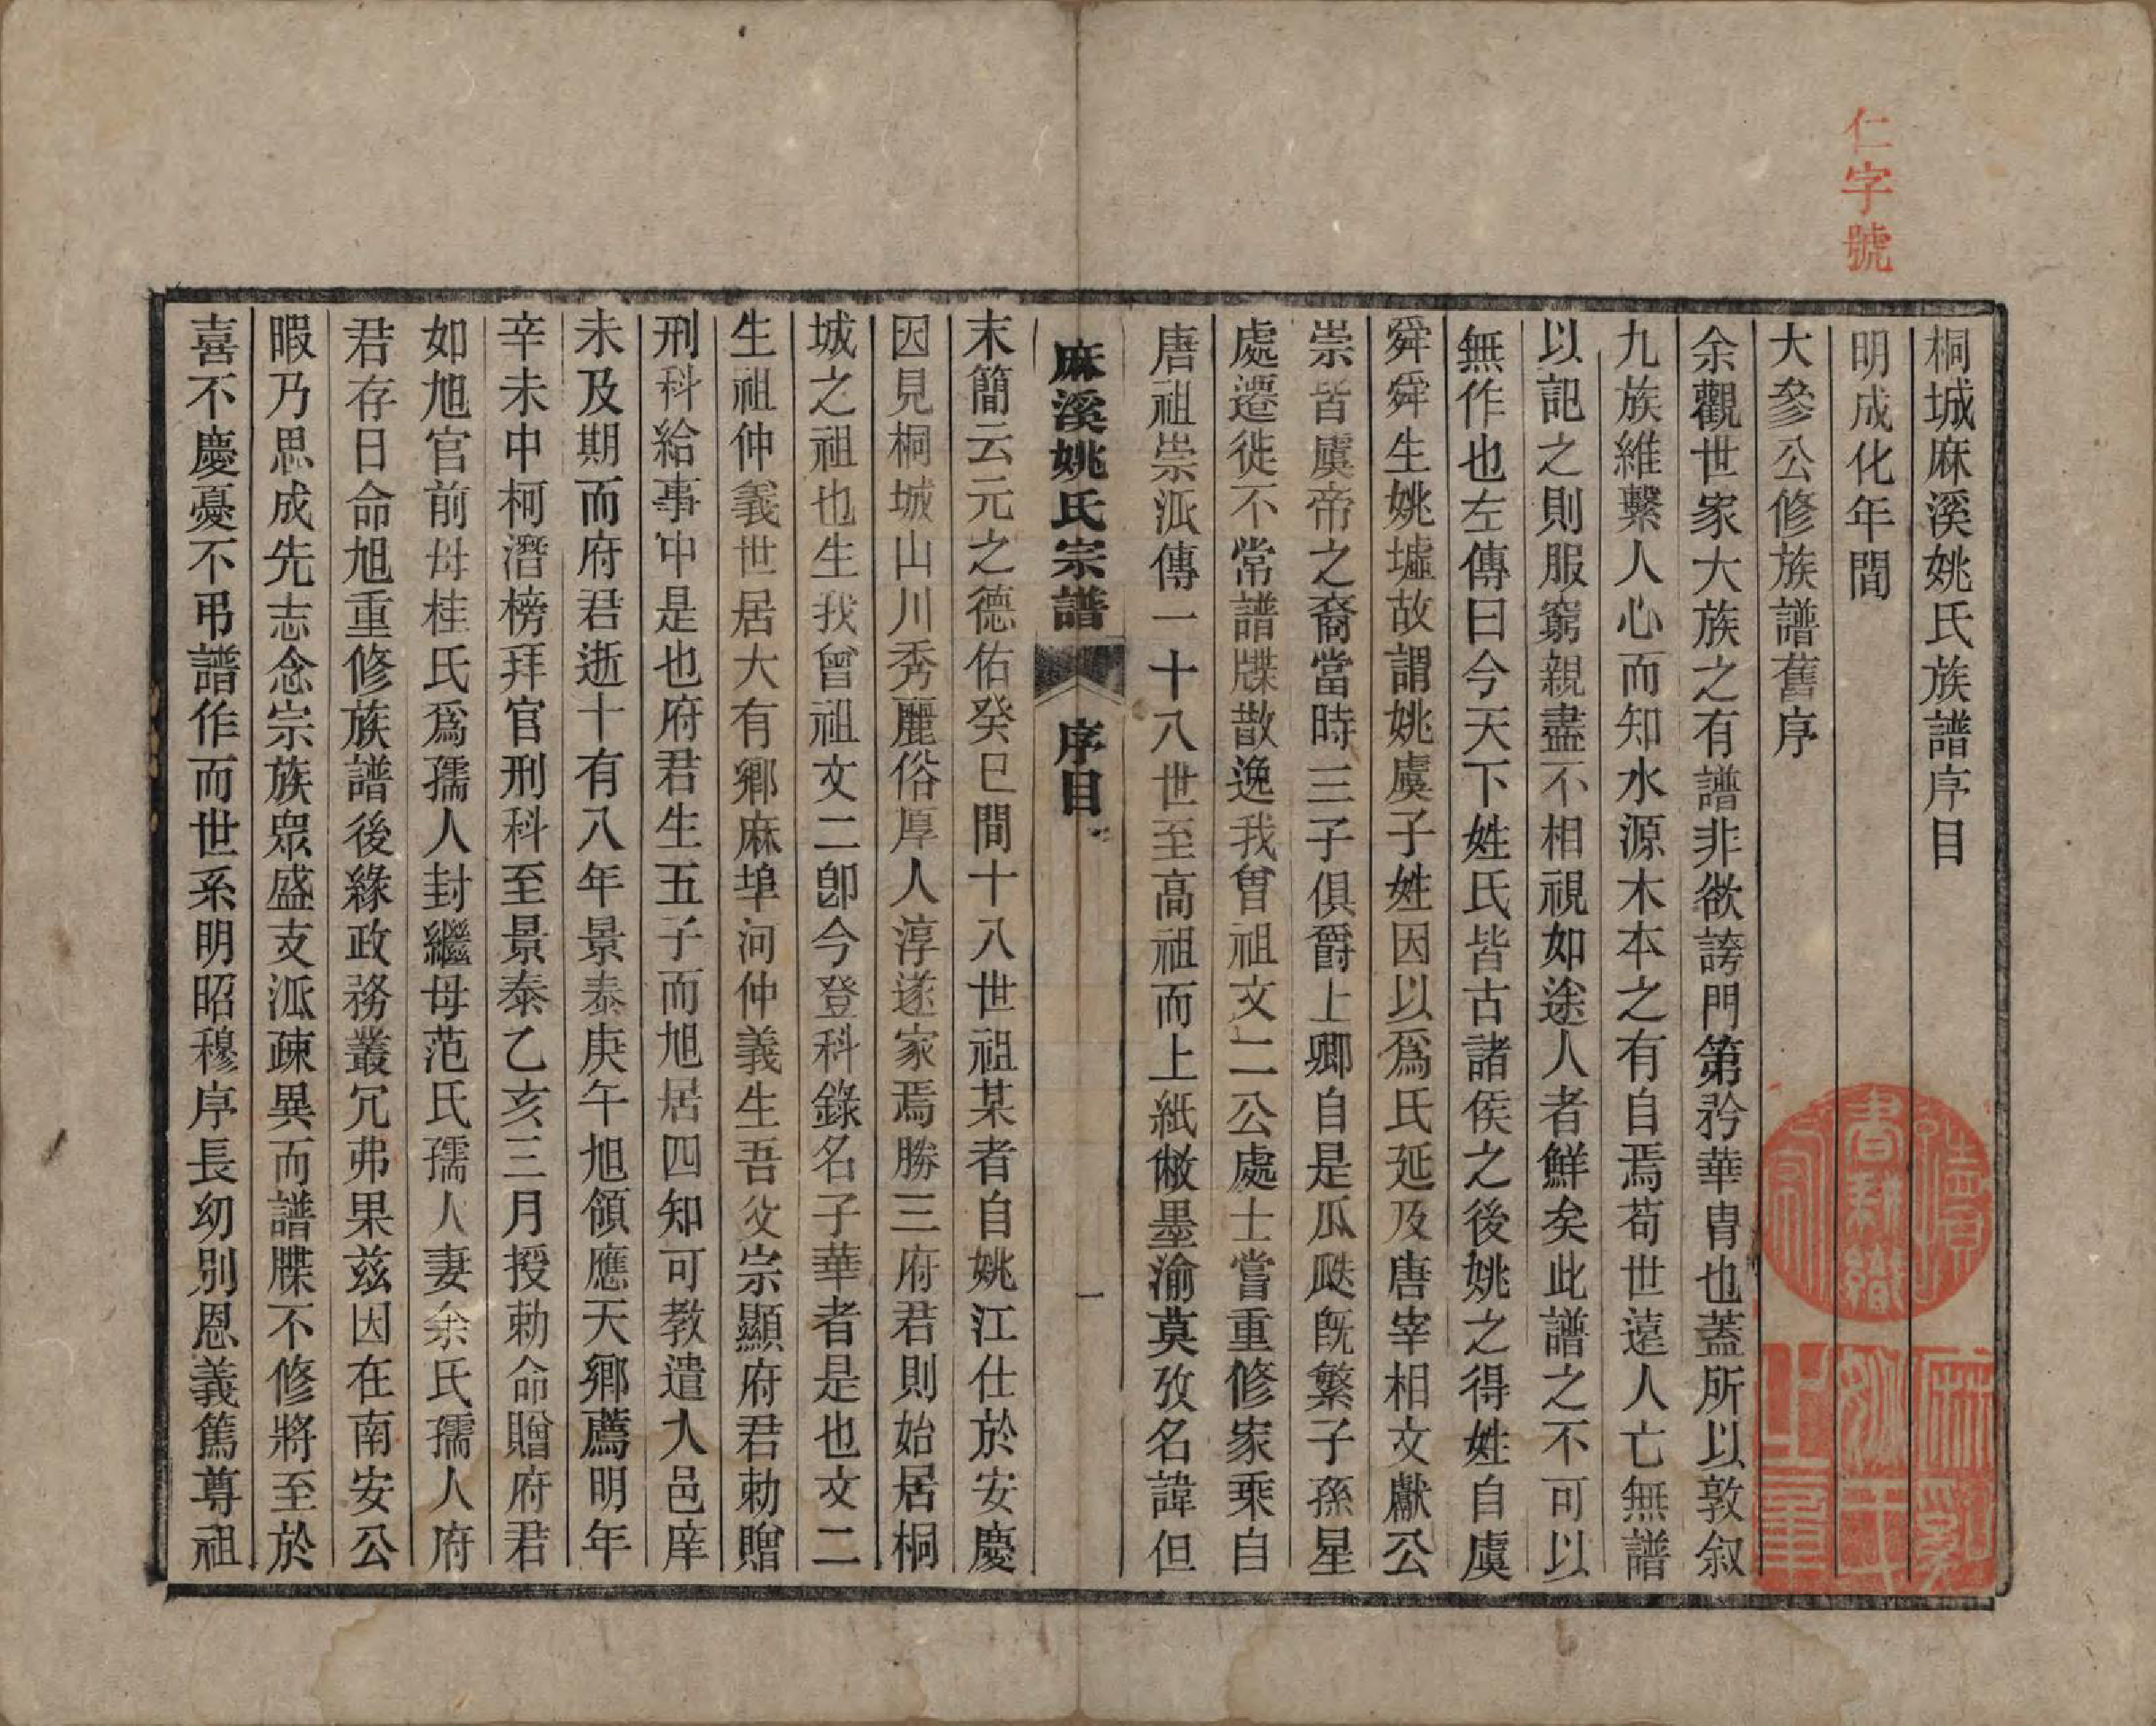 仁字號
桐城麻溪姚氏族譜序目
明成化年間
大參公修族譜舊序
余觀世家大族之有譜非欲誇門第矜華胄也蓋所以敦叙
九族維繫人心而知水源木本之有自焉苟世遠人亡無譜
以記之則服窮親盡不相視如途人者鮮矣此譜之不可以
無作也左傳曰今天下姓氏皆古諸侯之後姚之得姓自虞
舜舜生姚墟故謂姚虞子姓因以爲氏延及唐宰相文獻公
崇皆虞帝之裔當時三子俱爵上卿自是瓜瓞既繁子孫星
處遷徙不常譜牒散逸我曾祖文二公處士嘗重修家乘自
唐祖崇派傳一十八世至高祖而上紙敝墨渝莫攷名諱但
麻溪姚氏宗譜 序目 一
末簡云元之德佑癸巳間十八世祖某者自姚江仕於安慶
因見桐城山川秀麗俗厚人淳遂家焉勝三府君則始居桐
城之祖也生我曾祖文二卽今登科錄名子華者是也文二
生祖仲義世居大有鄉麻埠河仲義生吾父宗顯府君勅贈
刑科給事中是也府君生五子而旭居四知可教遣入邑庠
未及期而府君逝十有八年景泰庚午旭領應天鄉薦明年
辛未中柯潛榜拜官刑科至景泰乙亥三月授勅命贈府君
如旭官前母桂氏爲孺人封繼母范氏孺人妻余氏孺人府
君存日命旭重修族譜後緣政務叢冗弗果茲因在南安公
暇乃思成先志念宗族眾盛支派疎異而譜牒不修將至於
喜不慶憂不弔譜作而世系明昭穆序長幼別恩義篤尊祖